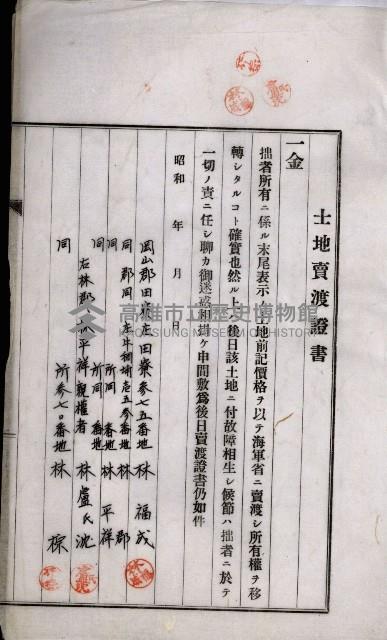 土地賣渡證書
一金
拙者所有ニ係ル末尾表示ノ土地前記價格ヲ以テ海軍省ニ賣渡シ所有權ヲ移
轉シタルコト確實也然ル上ハ後日該土地ニ付故障相生シ候節ハ拙者ニ於テ
一切ノ責ニ任シ聊カ御迷惑相掛ケ申間敷爲後日賣渡證書仍如件
昭和 年 月 日
岡山郡田寮庄田寮參七五番地 林 福成
同 郡同庄牛稠埔壱五参番地 林 郡
同 所同 番地 林 平祥
同 所同 番地
右林郡林平祥親權者 林 盧氏沈
同 所参七〇番地 林
高雄市立歷史博物館
KAOHSIUNG MUSEUM OF HISTORY